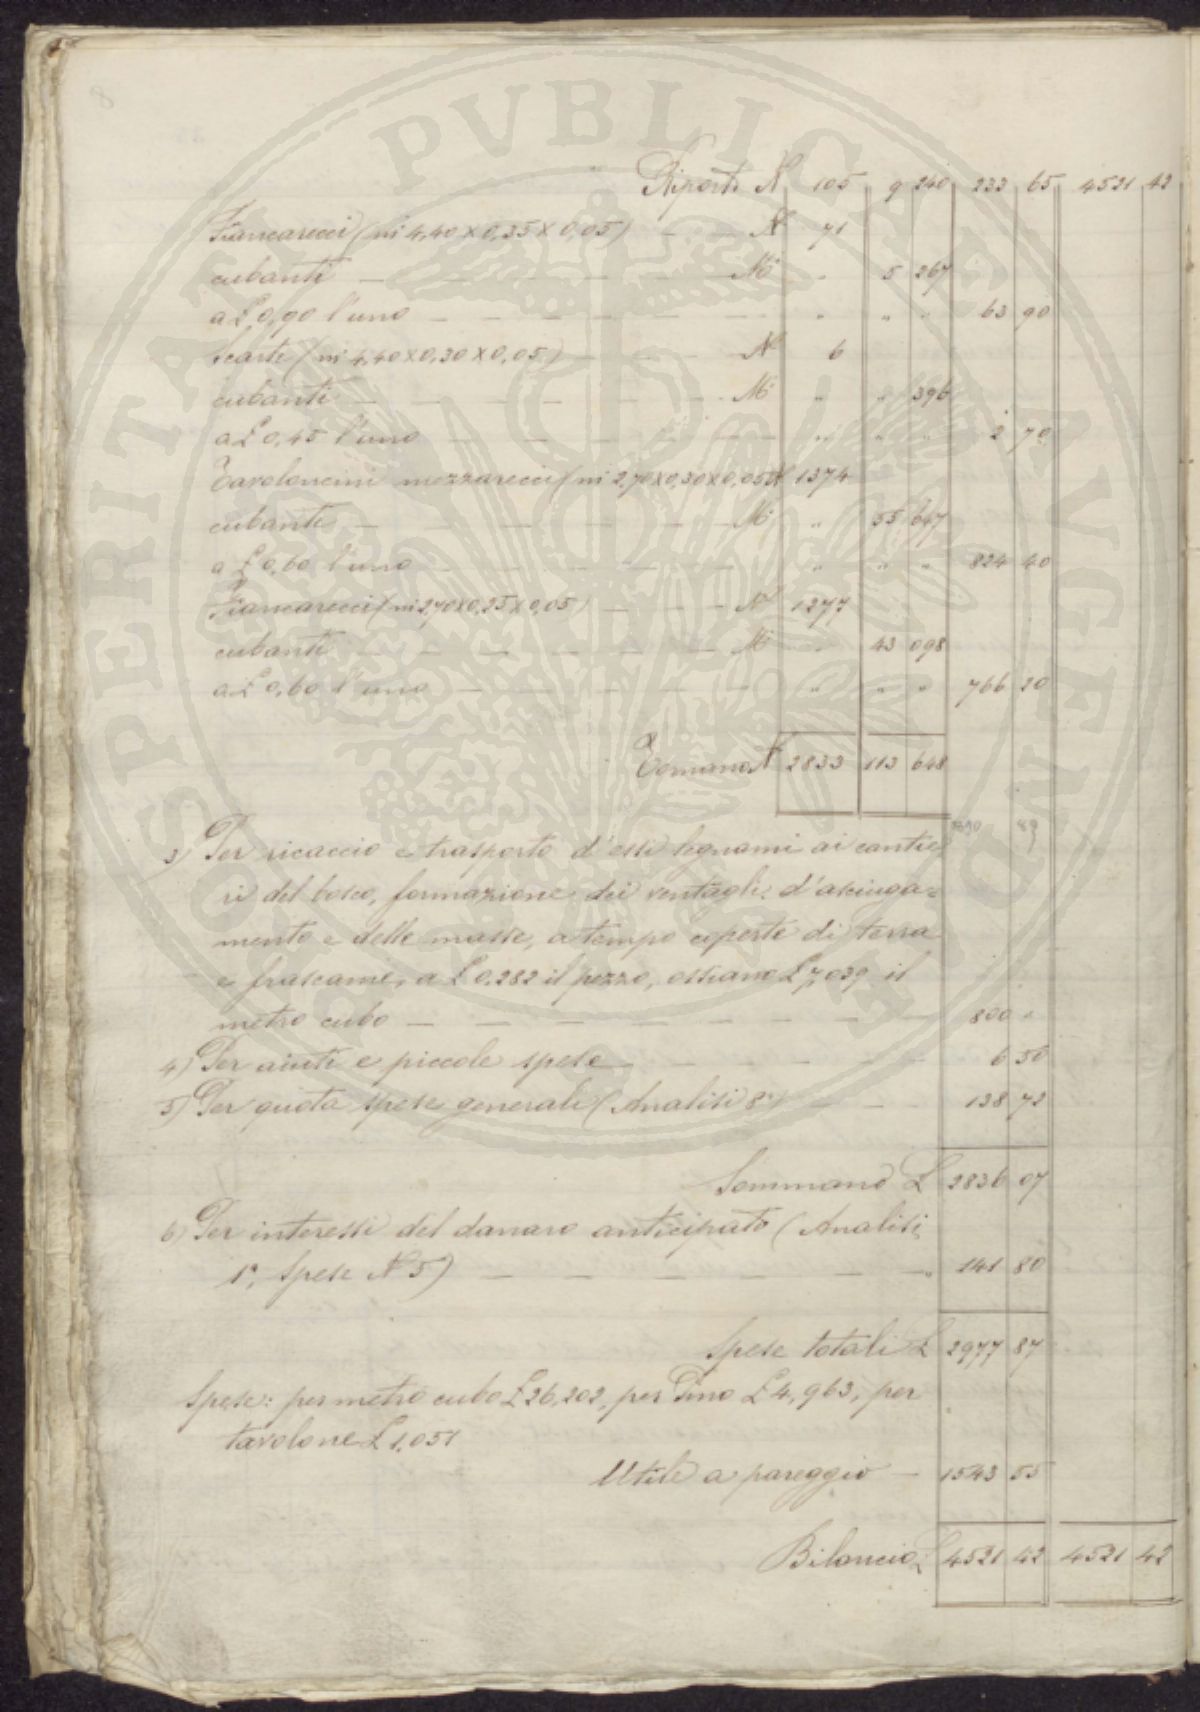 8
Riporto N. 105 9 240 233 65 4521 42
Fiancarecci (mi 4,40 x 0,35 x 0,05) — — N. 71
cubanti — — — — — — Mi. „ 5 267
a £ 0,90 l'uno — — — — — — „ „ „ 63 90
Scarti (mi 4,40 x 0,30 x 0,05) — — — N. 6
cubanti — — — — — — Mi. „ „ 396
a £ 0,45 l'uno — — — — — — „ „ „ 2 70
Tavoloncini mezzarecci (mi 2,70 x 0,30 x 0,05) N. 1374
cubanti — — — — — — Mi. „ 55 647
a £ 0,60 l'uno — — — — — — „ „ „ 824 40
Fiancarecci (mi 2,70 x 0,25 x 0,05) — — — N. 1277
cubanti — — — — — — Mi. „ 43 098
a £ 0,60 l'uno — — — — — — „ „ „ 766 20
Tornano N. 2833 113 648
1890 85
3) Per ricaccio e trasporto d'essi legnami ai cantie
ri del bosco, formazione dei ventagli d'asciuga=
mento e delle masse, a tempo coperte di terra
e frascame, a £ 0,282 il pezzo, ossiano £ 7,039 il
metro cubo — — — — — — — 800 „
4) Per aiuti e piccole spese — — — — — 6 50
5) Per quota spese generali (Analisi 8ª) — — 138 72
Sommano £ 2836 07
6) Per interessi del danaro anticipato (Analisi
1ª, Spese N. 5) — — — — — — „ 141 80
Spese totali £ 2977 87
Spese: per metro cubo £ 26,202, per Pino £ 4,963, per
tavolone £ 1,051
Utile a pareggio — 1543 55
Bilancio £ 4521 42 4521 42